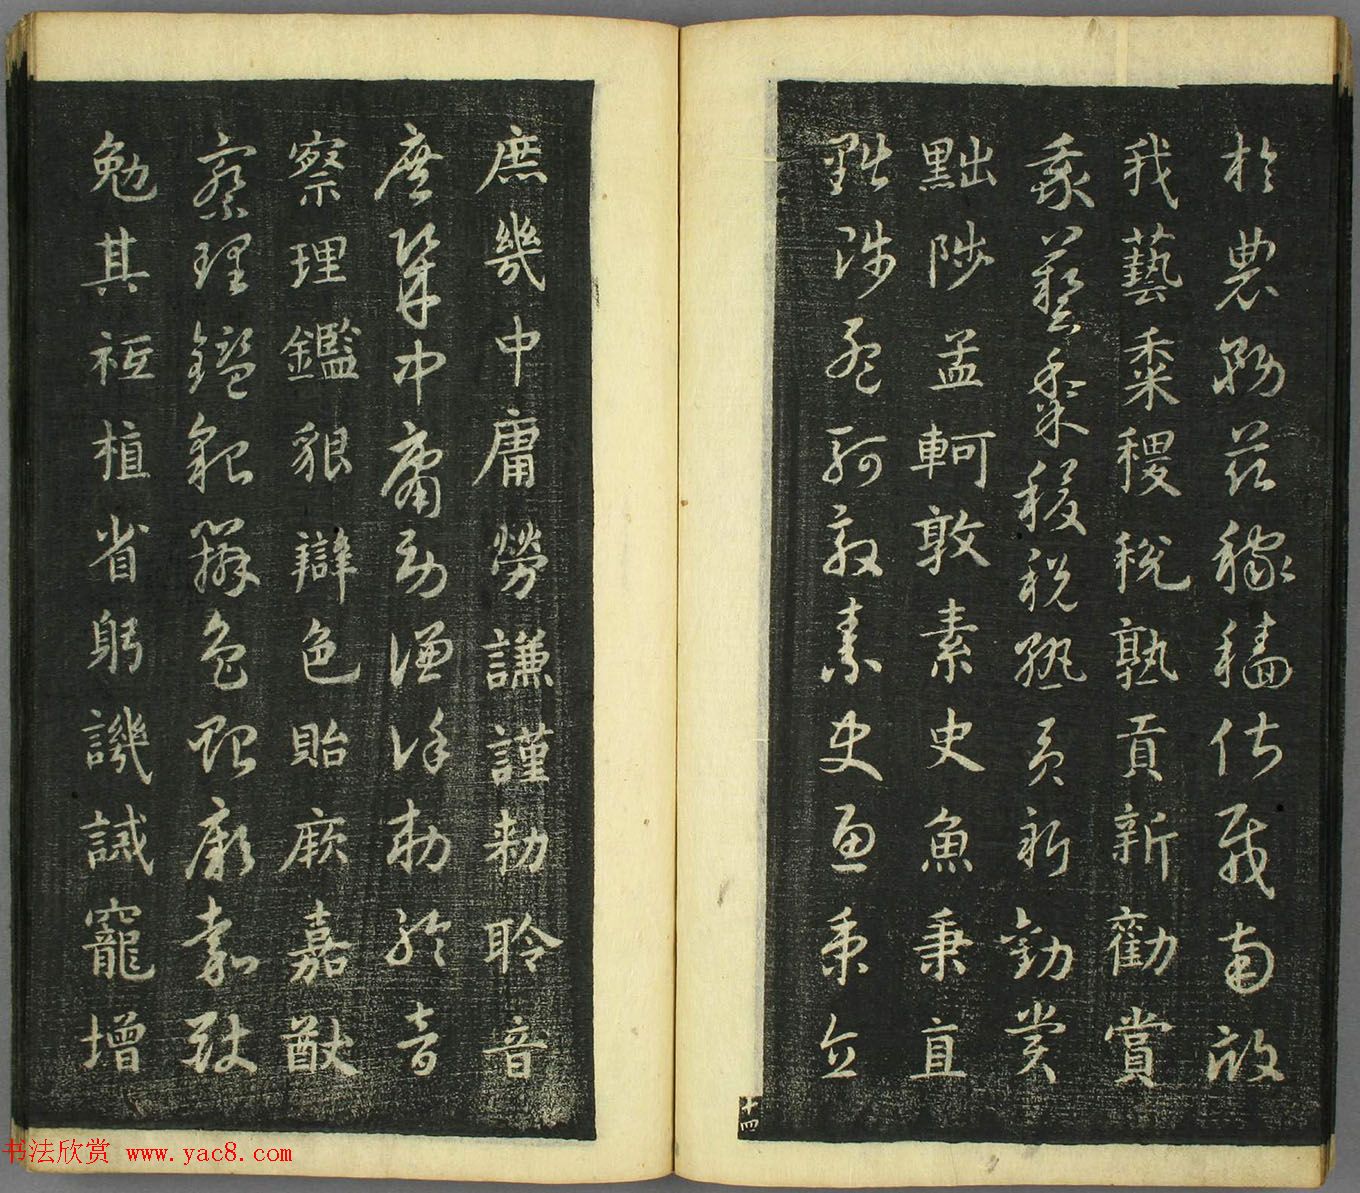 於農務茲稼穡俶載南畝
我藝黍稷稅熟貢新勸賞
我藝黍稷稅熟貢新勸賞
黜陟孟軻敦素史魚秉直
黜陟孟軻敦素史魚秉直
十四
庶幾中庸勞謙謹勅聆音
庶幾中庸勞謙謹勅聆音
察理鑑貌辯色貽厥嘉猷
察理鑑貌辯色貽厥嘉猷
勉其祗植省躬譏誡寵增
书法欣赏 www.yac8.com